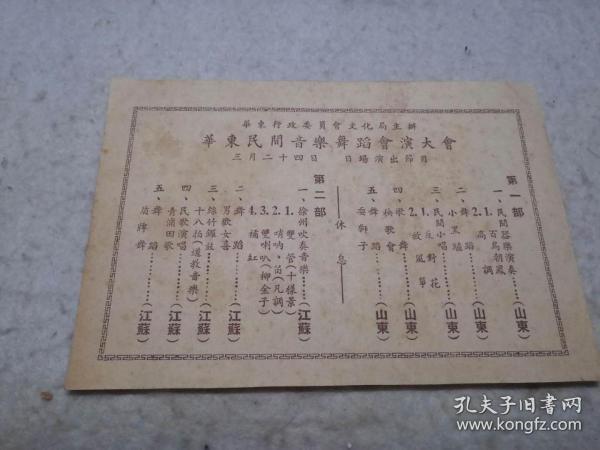 華東行政委員會文化局主辦
華東民間音樂舞蹈會演大會
三月二十四日 日場演出節目
第一部
一、民間器樂演奏……(山東)
1. 百鳥朝鳳
2. 高調
二、舞蹈……(山東)
小黑驢
三、民間小唱……(山東)
1. 反對花
2. 放風箏
四、歌舞……(山東)
秧歌會
五、舞蹈……(山東)
耍獅子
——休息——
第二部
一、徐州吹奏音樂……(江蘇)
1. 雙管(十樣景)
2. 哨吶、笛(凡調)
3. 雙喇叭(柳金子)
4. 橘紅
二、舞蹈……(江蘇)
男歡女喜
三、絲竹鑼鼓……(江蘇)
十八拍(道教音樂)
四、民歌演唱……(江蘇)
青浦田歌
五、舞蹈……(江蘇)
盾牌舞
孔夫子旧書网
www.kongfz.com